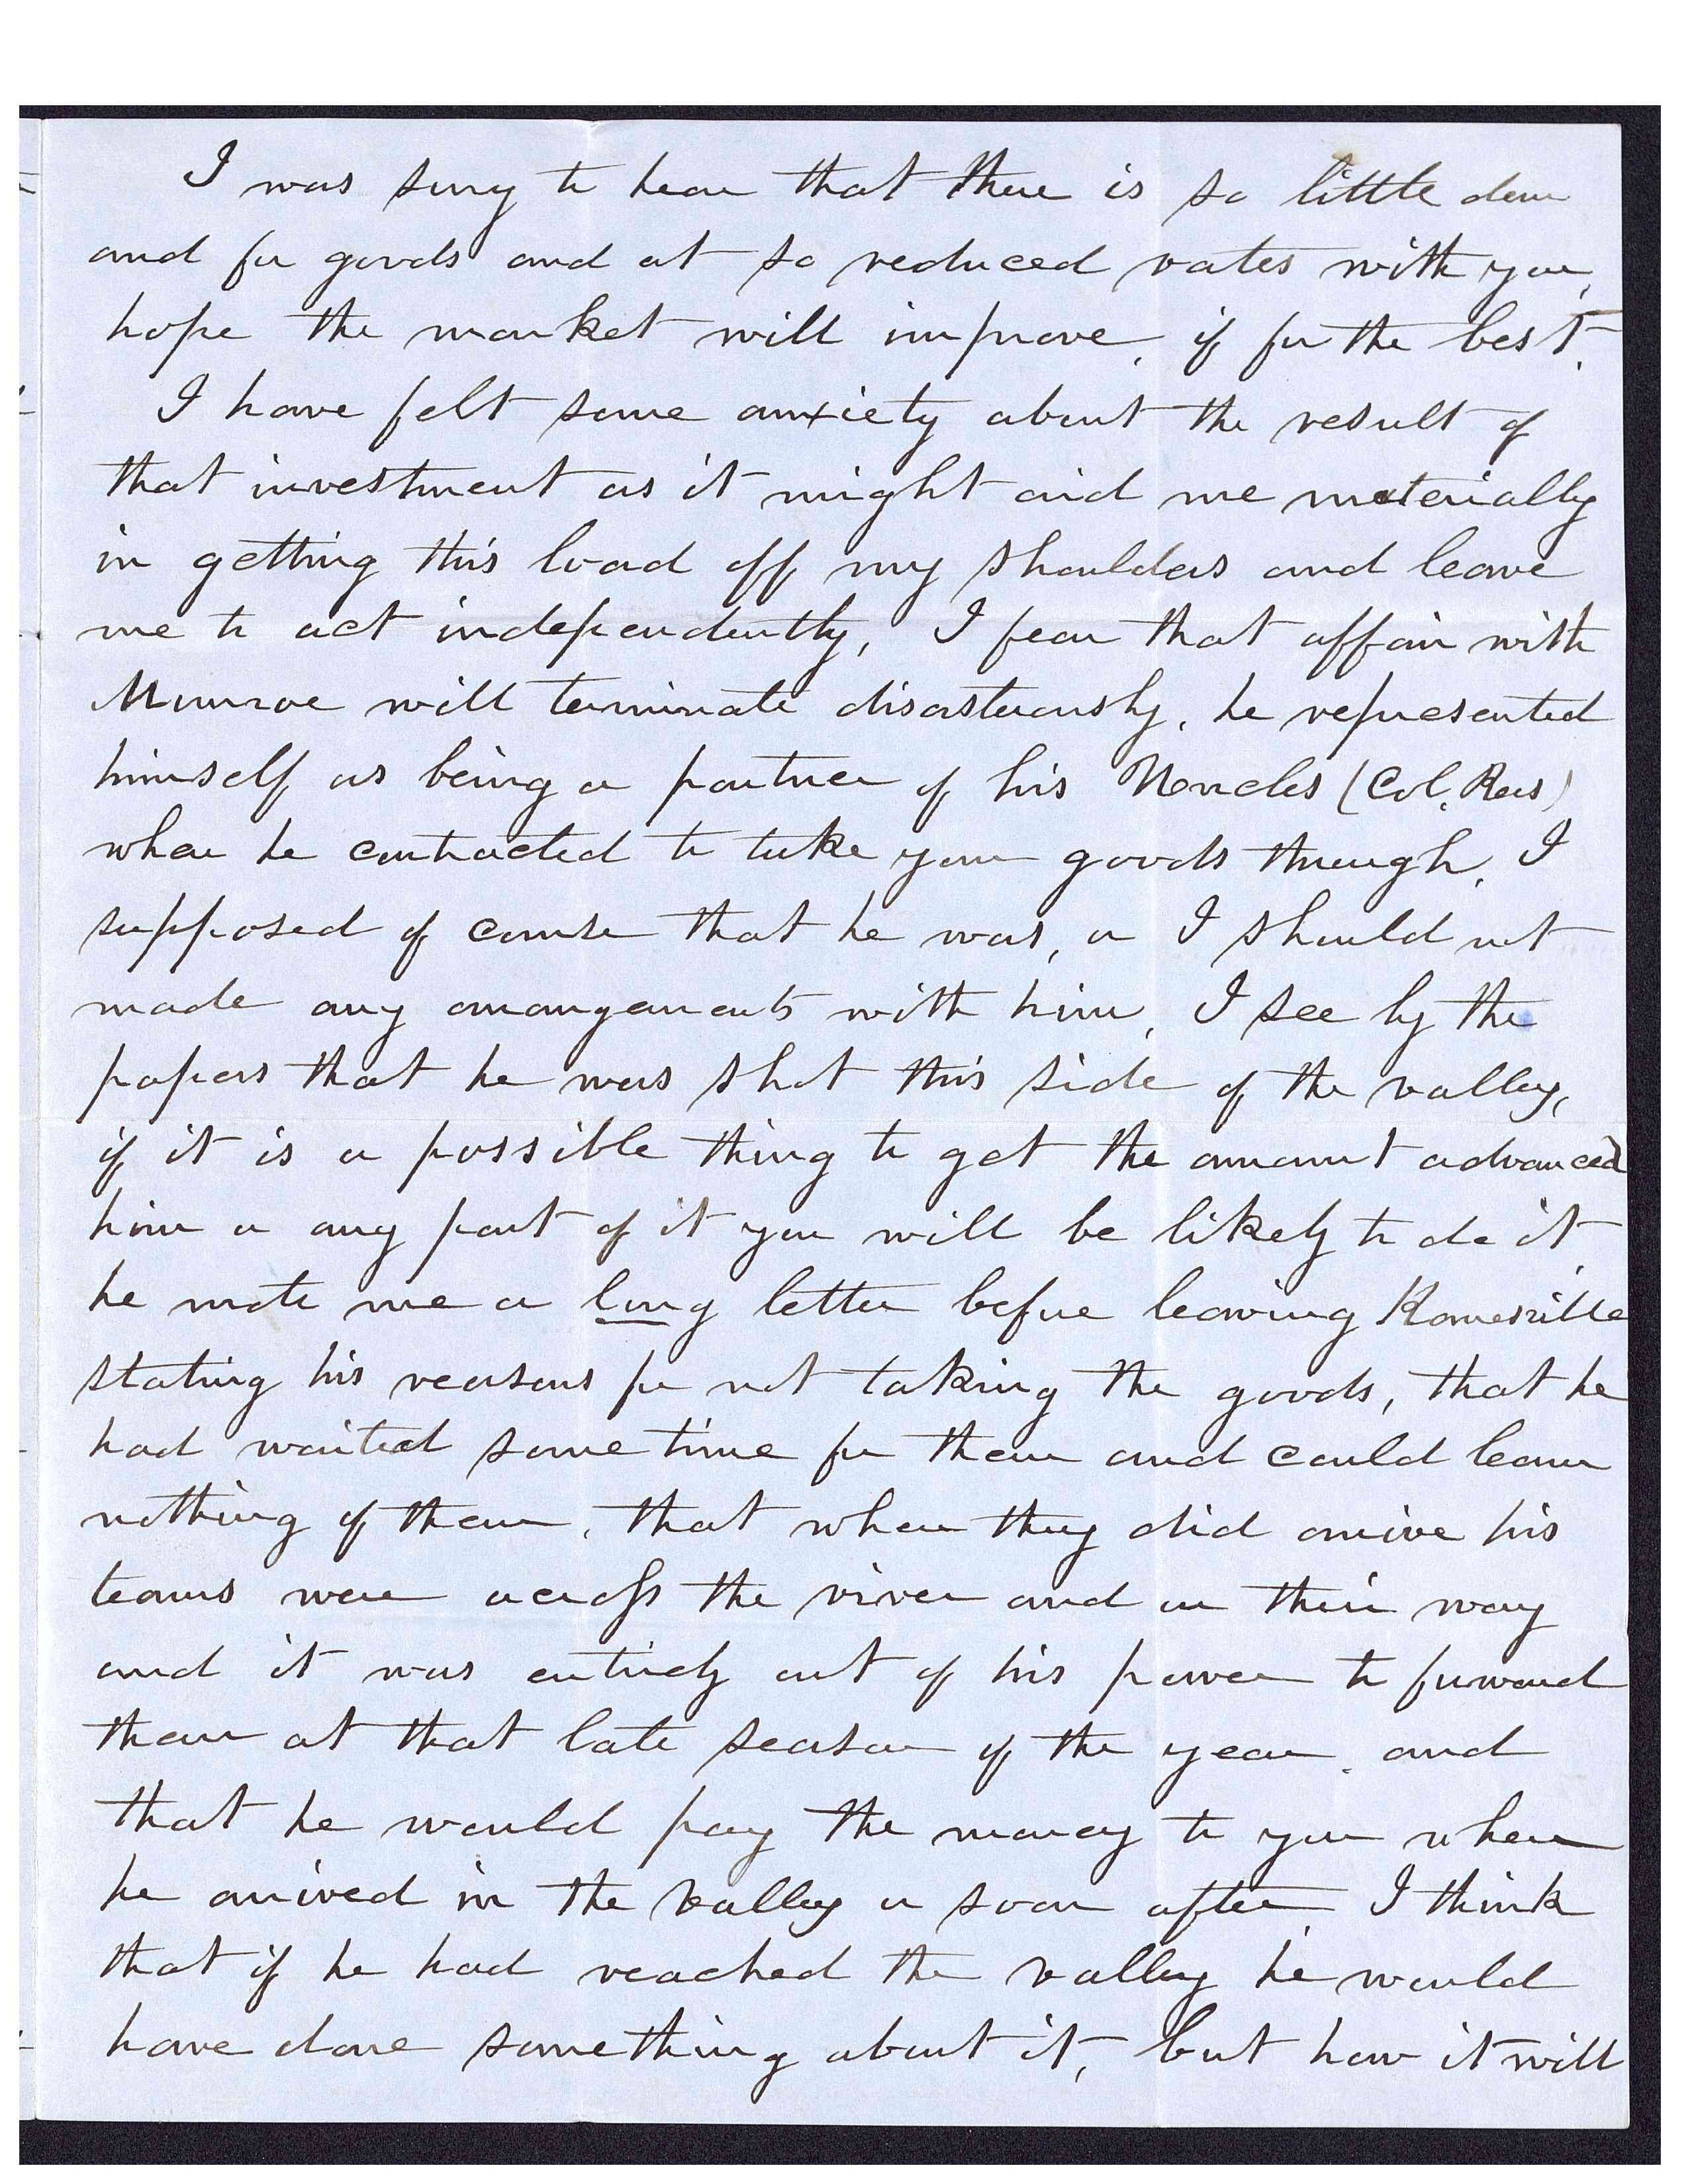 I was sorry to hear that there is so little dem
and for goods and at so reduced rates with you,
hope the market will improve, if for the best.
I have felt some anxiety about the result of
that investment as it might aid me materially
in getting this load off my shoulders and leave
me to act independently, I fear that affair with
Munroe will terminate disasterously, he represented
himself as being a partner of his Uncles (Col. Rees)
when he contracted to take your goods through, I
supposed of course that he was, or I should not
made any arrangements with him, I see by the
papers that he was shot this side of the valley,
if it is a possible thing to get the amount advanced
him or any part of it you will be likely to do it,
he wrote me a long letter before leaving Kanesville
stating his reasons for not taking the goods, that he
had waited some time for them and could learn
nothing of them, that when they did arrive his
teams were across the river and on their way
and it was entirely out of his power to forward
them at that late season of the year, and
that he would pay the money to you when
he arrived in the valley or soon after, I think
that if he had reached the valley he would
have done something about it, but how it will